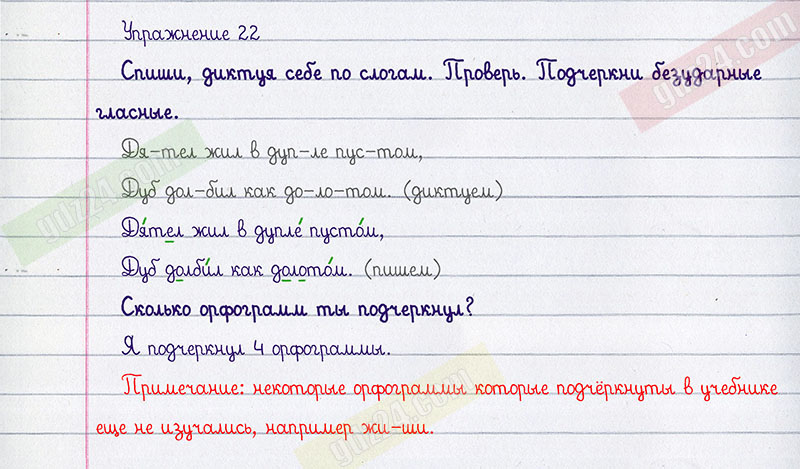 Упражнение 22
Спиши, диктуя себе по слогам. Проверь. Подчеркни безударные
гласные.
Дя-тел жил в дуп-ле пус-том,
Дуб дол-бил как до-ло-том. (диктуем)
Дя́тел жил в дупле́ пусто́м,
Дуб долби́л как долото́м. (пишем)
Сколько орфограмм ты подчеркнул?
Я подчеркнул 4 орфограммы.
Примечание: некоторые орфограммы которые подчёркнуты в учебнике
еще не изучались, например жи-ши.
gdz24.com
gdz24.com
gdz24.com